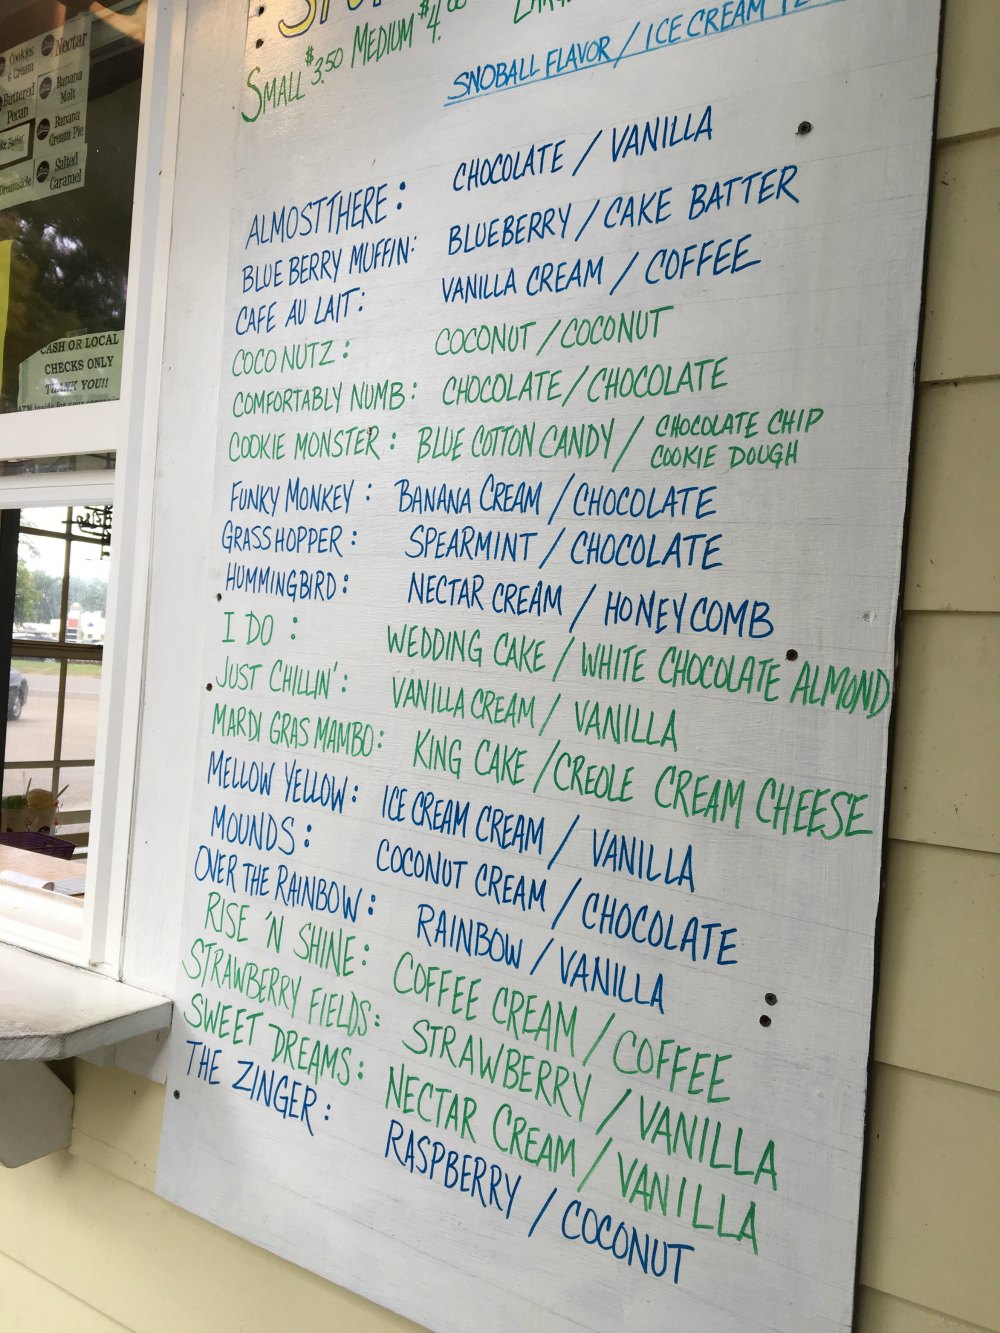 SMALL $3.50 MEDIUM $4.00
SNOBALL FLAVOR / ICE CREAM
ALMOST THERE: CHOCOLATE / VANILLA
BLUE BERRY MUFFIN: BLUEBERRY / CAKE BATTER
CAFE AU LAIT: VANILLA CREAM / COFFEE
COCO NUTZ: COCONUT / COCONUT
COMFORTABLY NUMB: CHOCOLATE / CHOCOLATE
COOKIE MONSTER: BLUE COTTON CANDY / CHOCOLATE CHIP
COOKIE DOUGH
FUNKY MONKEY: BANANA CREAM / CHOCOLATE
GRASSHOPPER: SPEARMINT / CHOCOLATE
HUMMINGBIRD: NECTAR CREAM / HONEYCOMB
I DO: WEDDING CAKE / WHITE CHOCOLATE ALMOND
JUST CHILLIN': VANILLA CREAM / VANILLA
MARDI GRAS MAMBO: KING CAKE / CREOLE CREAM CHEESE
MELLOW YELLOW: ICE CREAM CREAM / VANILLA
MOUNDS: COCONUT CREAM / CHOCOLATE
OVER THE RAINBOW: RAINBOW / VANILLA
RISE 'N SHINE: COFFEE CREAM / COFFEE
STRAWBERRY FIELDS: STRAWBERRY / VANILLA
SWEET DREAMS: NECTAR CREAM / VANILLA
THE ZINGER: RASPBERRY / COCONUT
Cookies
& Cream
Nectar
Buttered
Pecan
Banana
Malt
Banana
Cream Pie
Salted
Caramel
CASH OR LOCAL
CHECKS ONLY
THANK YOU!!